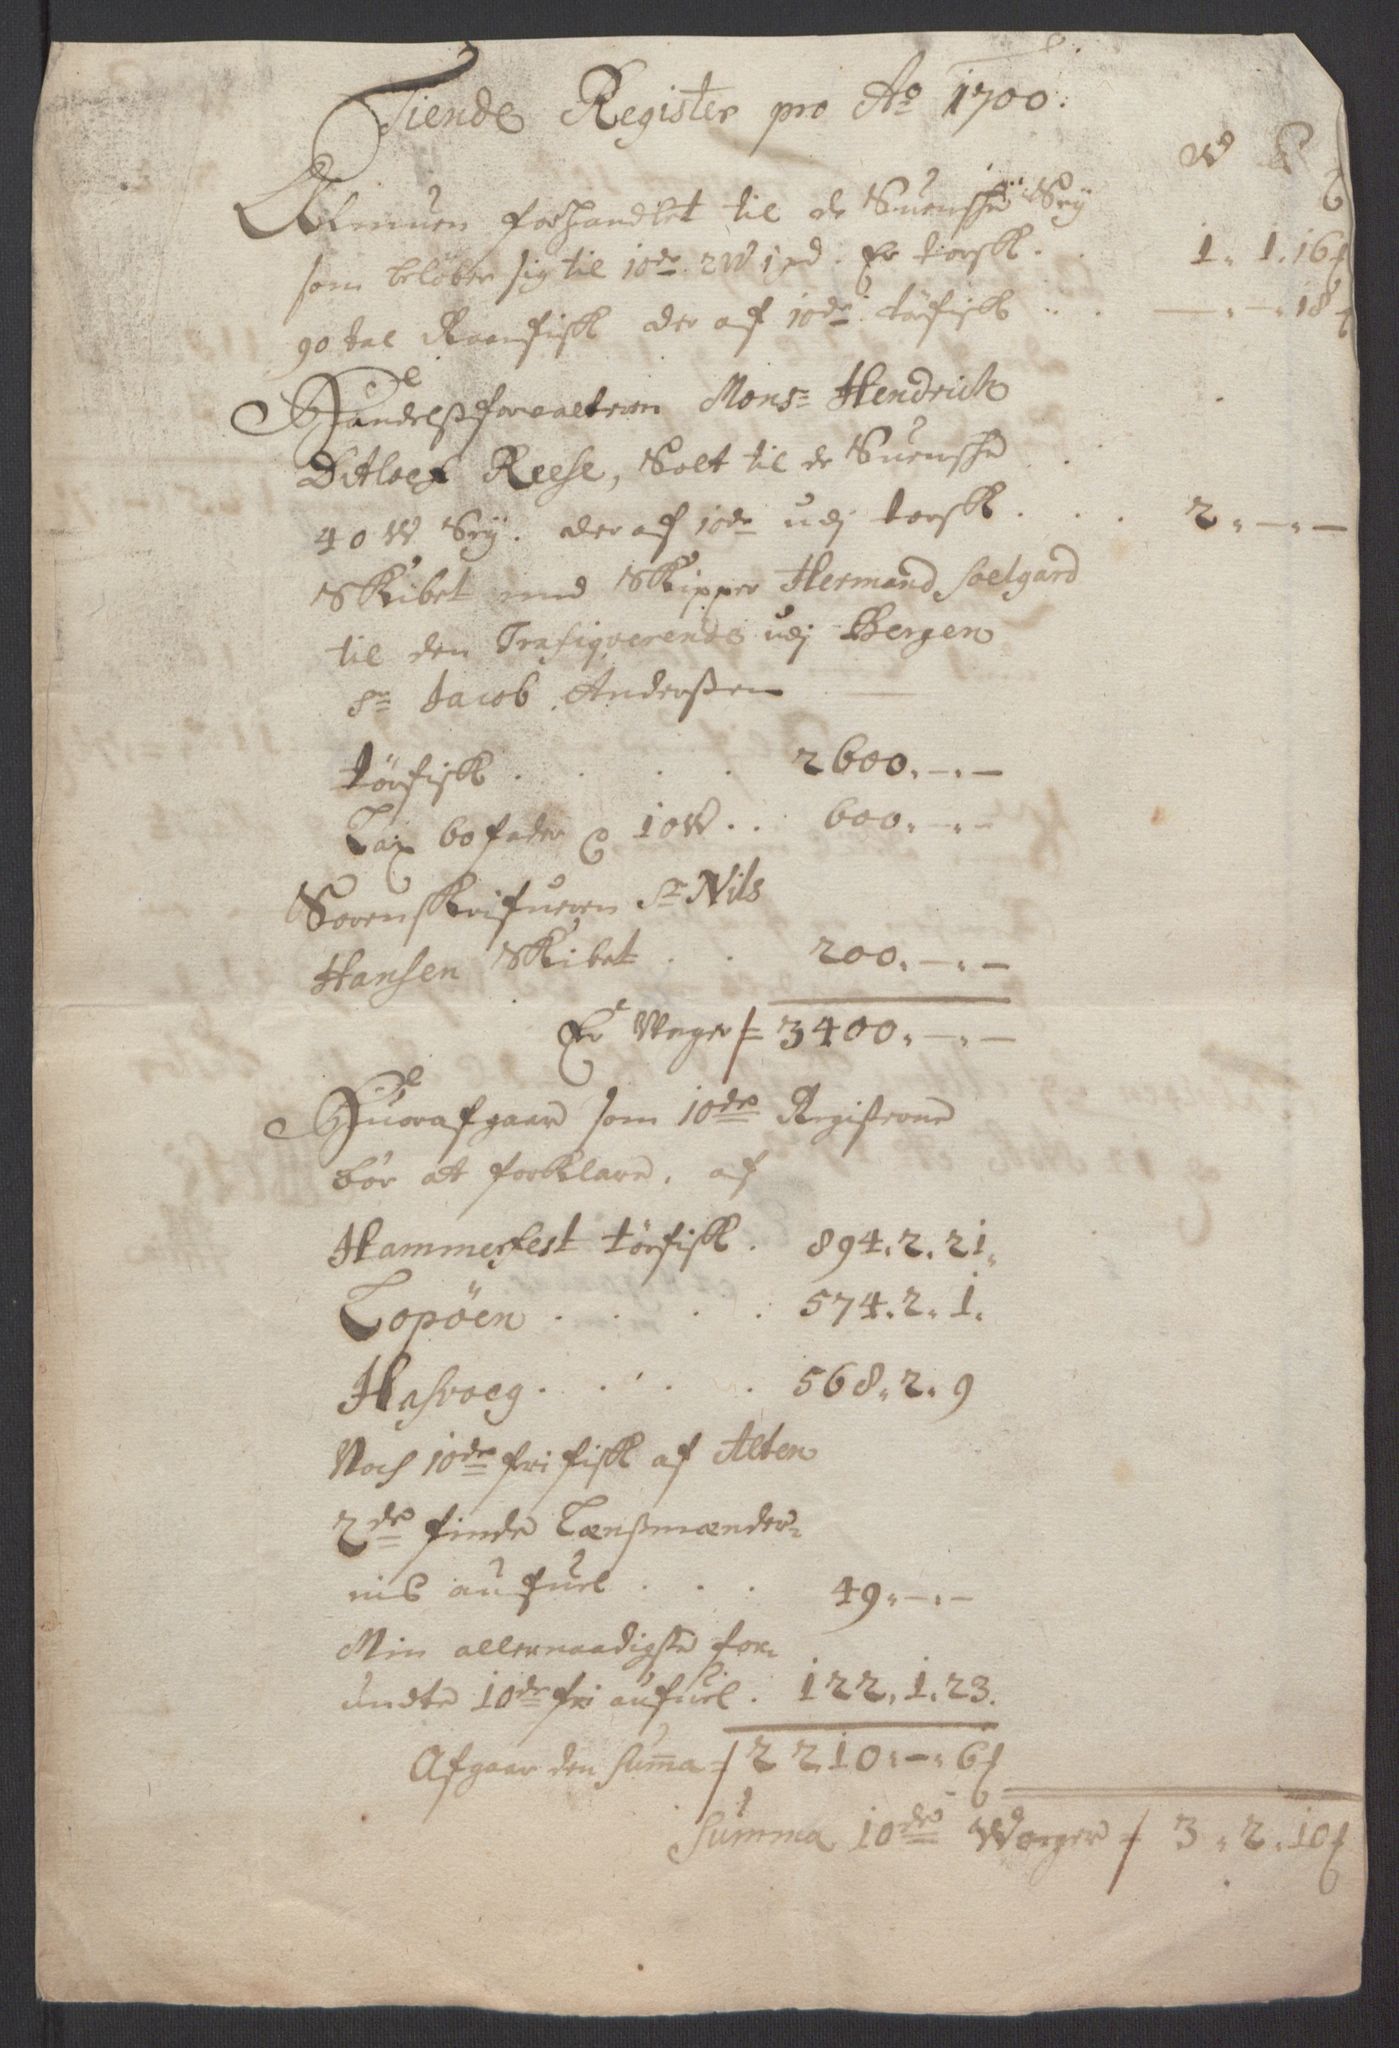 Tiende Register pro Ao 1700:
W P
Almuen forhandlet til de Suenshe Sey
som beløber sig til 10de 2 W 1 pd. Er torsk . 1. 1. 16
90 tal Raanfisk der af 10de tørfisk . . —.—. 18
Handelsforvalteren Monsr Hendrich
Ditloef Reese, Solt til de Suenshe
40 W Sey. der af 10de udj torsk . . . 2.—.—
Skibet med Skipper Hermand Soelgard
til den Trafiqverende udj Bergen
Sr Jacob Anderßen
tørfisk . . . . 2600.—.—
Lax 60 fader 10 W . . 600.—.—
Sorenskrifueren Sr Nils
Hansen Skibet . . 200.—.—
Er Woger 3400.—.—
Huorafgaar som 10de Registerne
bør at forklare, af
Hammerfest tørfisk . 894. 2. 21.
Lopöen . . . . 574. 2. 1.
Hasvoeg . . . . 568. 2. 9
Noch 10de fri fisk af Alten
2de finde Lænßmænder-
nis aufuel . . . 49.—.—
Min allernaadigste for-
undte 10de fri aufuel . 122. 1. 23.
Afgaar den Suma 2210.—. 6
Summa 10de Woeger 3. 2. 10